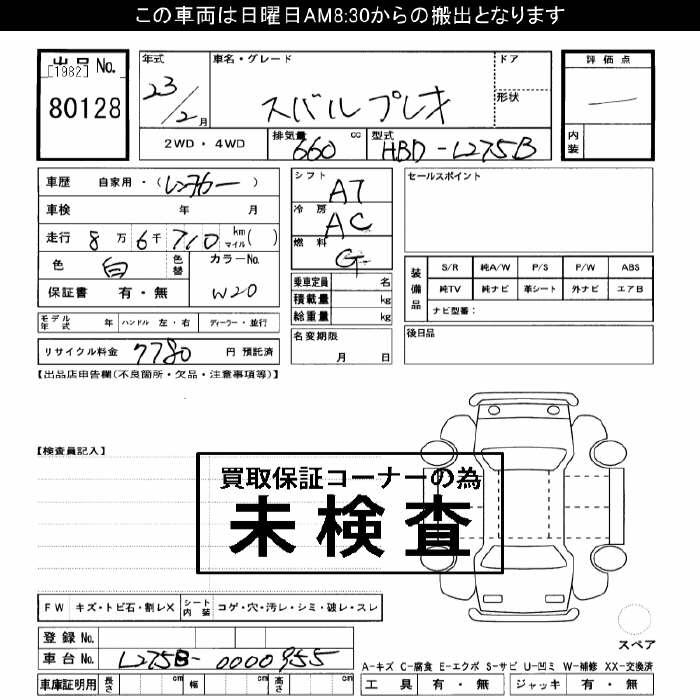 この車両は日曜日AM8:30からの搬出となります
出品No. 年式 車名・グレード ドア 評価点
[1982]
80128 23/2月 スバルプレオ 形状 —
2WD・4WD 排気量 660 cc 型式 HBD-L275B 内装
車歴 自家用・(レンタカー) シフト AT セールスポイント
車検 年 月 冷房 AC
走行 8万6千710 km マイル ( ) 燃料 G
色 白 色替 カラーNo. W20
装備品 S/R 純A/W P/S P/W ABS
保証書 有・無 乗車定員 名 純TV 純ナビ 革シート 外ナビ エアB
積載量 kg ナビ型番:
総重量 kg
モデル年式 年 ハンドル 左・右 ディーラー・並行 名変期限 月 日 後日品
リサイクル料金 7780 円 預託済
【出品店申告欄(不良箇所・欠品・注意事項等)】
【検査員記入】
買取保証コーナーの為
未検査
FW キズ・トビ石・割レX シート内装 コゲ・穴・汚レ・シミ・破レ・スレ
登録No.
スペア
車台No. L275B-0000955
A-キズ C-腐食 E-エクボ S-サビ U-凹ミ W-補修 XX-交換済
車庫証明用 長さ cm 幅 cm 高さ cm 工具 有・無 ジャッキ 有・無